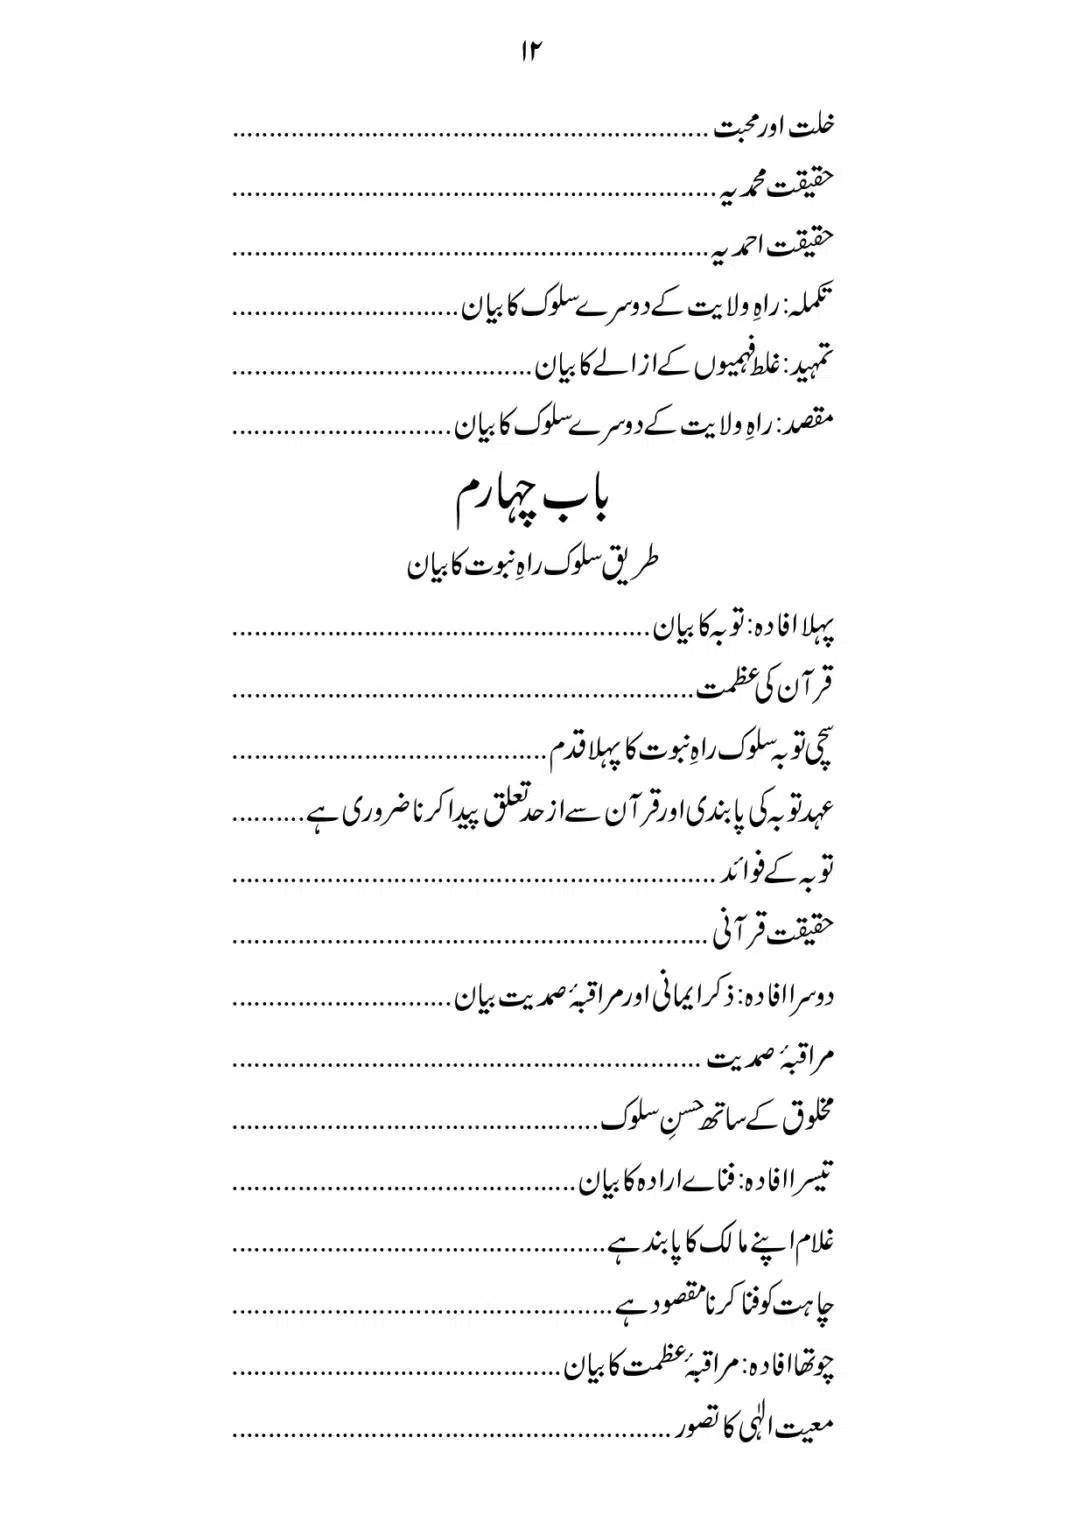 ۱۲
خلت اور محبت ................................................................
حقیقت محمدیہ .................................................................
حقیقت احمدیہ ................................................................
تکملہ: راہِ ولایت کے دوسرے سلوک کا بیان ...............................
تمہید: غلط فہمیوں کے ازالے کا بیان .........................................
مقصد: راہِ ولایت کے دوسرے سلوک کا بیان ..............................
باب چہارم
طریق سلوک راہِ نبوت کا بیان
پہلا افادہ: توبہ کا بیان .........................................................
قرآن کی عظمت ...............................................................
سچی توبہ سلوک راہِ نبوت کا پہلا قدم ...........................................
عہد توبہ کی پابندی اور قرآن سے از حد تعلق پیدا کرنا ضروری ہے ..........
توبہ کے فوائد .................................................................
حقیقت قرآنی ................................................................
دوسرا افادہ: ذکر ایمانی اور مراقبۂ صمدیت بیان ..............................
مراقبۂ صمدیت ...............................................................
مخلوق کے ساتھ حسنِ سلوک ..................................................
تیسرا افادہ: فناے ارادہ کا بیان ...............................................
غلام اپنے مالک کا پابند ہے ...................................................
چاہت کو فنا کرنا مقصود ہے ....................................................
چوتھا افادہ: مراقبۂ عظمت کا بیان .............................................
معیت الٰہی کا تصور ............................................................